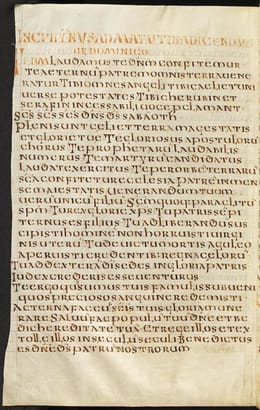 INCP YMNUS AD MATUTIN DICENDUM
DIE DOMINICO
TE DM LAUDAMUS TE DNM CONFITEMUR
TE AETERNU PATREM OMNIS TERRA VENE
RATUR TIBI OMNES ANGELI TIBI CAELI ET UNI
VERSE POTESTATES TIBI CHERUBIN ET
SERAFIN INCESSABILI VOCE PCLAMANT
SCS SCS SCS DNS DS SABAOTH
PLENI SUNT CELI ET TERRA MAGESTATIS
GLORIE TUE TE GLORIOSUS APOSTOLORU
CHORUS TE PROPHETARU LAUDABILIS
NUMERUS TE MARTYRU CANDIDATUS
LAUDAT EXERCITUS TE PER ORBE TERRARU
SCA CONFITETUR ECCLESIA PATRE INMEN
SE MAIESTATIS UENERANDUM TUUM
UERU UNICU FILIU SCM QUOQ PARACLITU
SPM TU REX GLORIE XPS TU PATRIS SEPI
TERNUS ES FILIUS TU AD LIBERANDU SUS
CEPISTI HOMINE NON HORRUISTI UIRGI
NIS UTERU TU DEUICTU MORTIS ACULEO
APERUISTI CREDENTIB REGNA CELORU
TU AD DEXTERA DI SEDES IN GLORIA PATRIS
IUDEX CREDERIS ESSE UENTURUS
TE ERGO QUSUMUS TUIS FAMULIS SUBUENI
QUOS PRECIOSO SANGUINE REDEMISTI
AETERNA FAC CU SCIS TUIS GLORIA MUNE
RARE SALUU FAC POPULU TUU DNE ET BE
DIC HEREDITATE TUA ET REGE ILLOS ET EX
TOLLE ILLOS IN SECULU SECULI BENEDICTUS
ES DNE DS PATRU NOSTRORUM